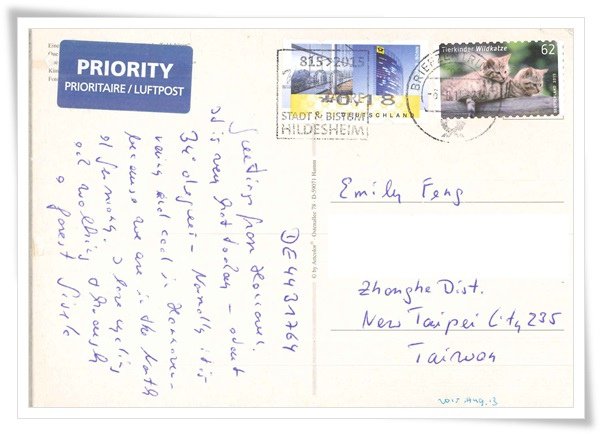 PRIORITY
PRIORITAIRE / LUFTPOST
815>2015
STADT & BISTUM
HILDESHEIM
DEUTSCHLAND
BRIEFZENTRUM
Tierkinder Wildkatze 62
Greetings from Hannover.
It is very hot today – about
34 degrees – Normally it is
rainy and cool in Hannover –
because we are in the North
of Germany. I love cycling
and walking through
a forest Gisela
DE4431764
Ostenallee 78 · D-59071 Hamm
Emily Feng
Zhonghe Dist.
New Taipei City 235
Taiwan
2015 Aug. 13